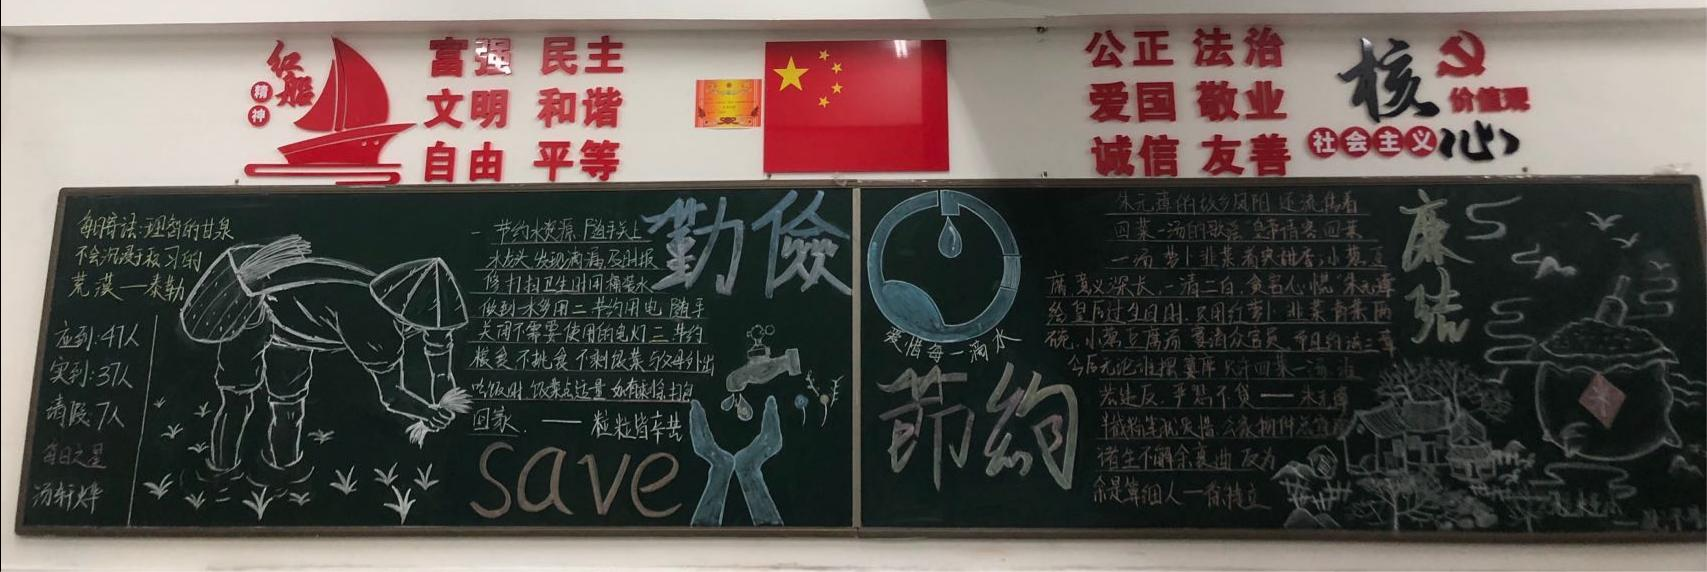 红船
精神
富强 民主
文明 和谐
自由 平等
公正 法治
爱国 敬业
诚信 友善
核心
价值观
社会主义
每日寄语:理智的甘泉
不会沉浸于权习的
荒漠——泰勒
应到:47人
实到:37人
请假:7人
每日之星
汤轩烨
勤俭
一 节约水资源 随手关上
水龙头 发现滴漏 及时报
修 打扫卫生时用桶装水
做到一水多用 二 节约用电 随手
关闭不需要使用的电灯 三 节约
粮食 不挑食 不剩饭菜 与父母外出
吃饭时 饭菜点适量 如有剩余 打包
回家. ——粒粒皆辛苦
save
爱惜每一滴水
節約
朱元璋的故乡凤阳 还流传着
四菜一汤的歌谣 皇帝请客 四菜
一汤 萝卜韭菜 着实甜香 小葱豆
腐 意义深长 一清二白 贪官心慌 朱元璋
给皇后过生日时 只用红萝卜 韭菜 青菜两
碗 小葱豆腐汤 宴请众官员 而且约法三章
今后不论谁摆宴席 只许四菜一汤 谁
若违反 严惩不贷——朱元璋
诸生不解余衷曲 反为
余是算细人 一
廉洁